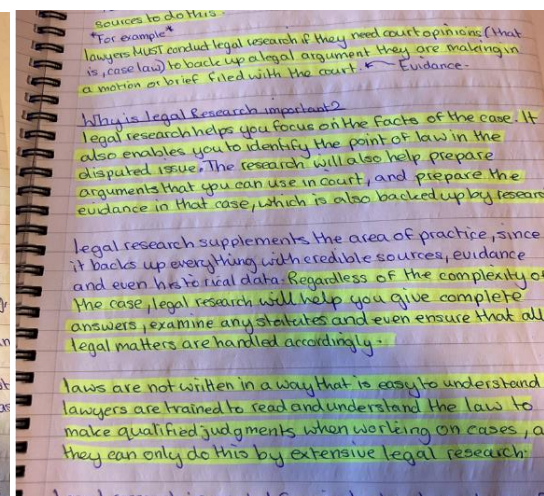 sources to do this.
*For example*
lawyers MUST conduct legal research if they need court opinions (that
is, case law) to back up a legal argument they are making in
a motion or brief filed with the court. ← Evidance.
Why is legal Research important?
legal research helps you focus on the facts of the case. It
also enables you to identify the point of law in the
disputed issue. The research will also help prepare
arguments that you can use in court, and prepare the
evidance in that case, which is also backed up by researc
legal research supplements the area of practice, since
it backs up everything with credible sources, evidance
and even historical data. Regardless of the complexity of
the case, legal research will help you give complete
answers, examine any statates and even ensure that all
legal matters are handled accordingly.
laws are not written in a way that is easy to understand
lawyers are trained to read and understand the law to
make qualified judgments when working on cases, a
they can only do this by extensive legal research.